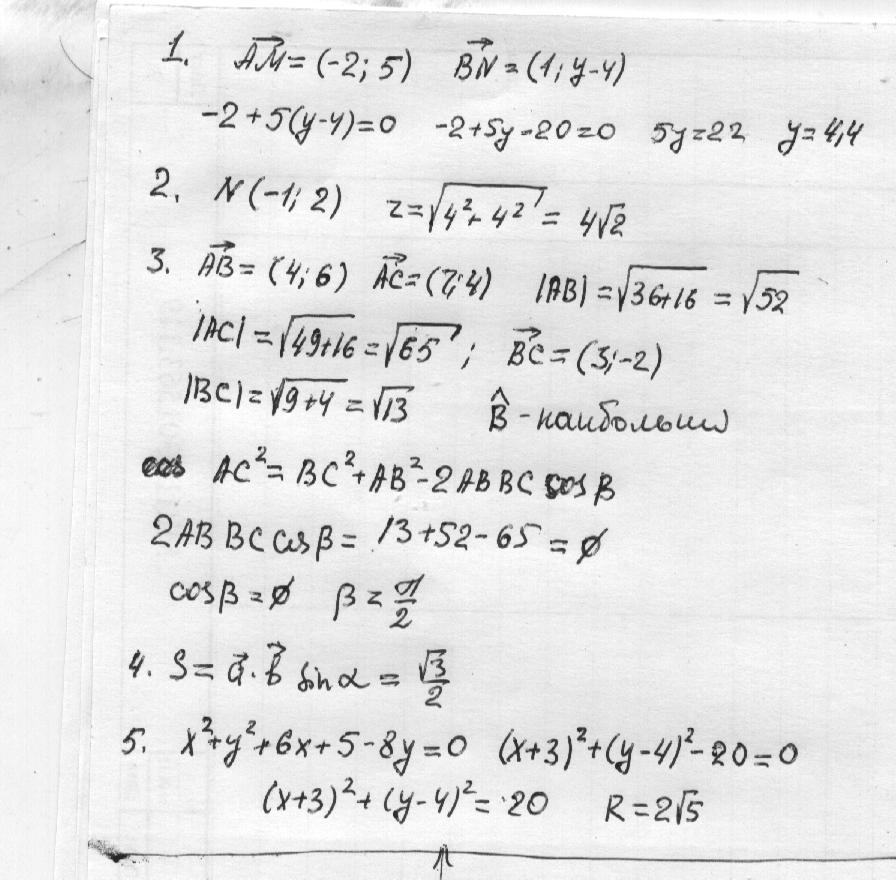 1. AM = (-2; 5) BN = (1; y-4)
-2+5(y-4)=0 -2+5y-20=0 5y=22 y=4,4
2. N(-1; 2) r=√(4²+4²) = 4√2
3. AB = (4; 6) AC=(7;4) |AB|=√(36+16) = √52
|AC|=√(49+16)=√65; BC=(3;-2)
|BC|=√(9+4)=√13 B̂ - наибольш
AC²=BC²+AB²-2AB BC cos β
2AB BC cos β = 13+52-65 = 0
cos β = 0 β = π/2
4. S= a·b sin α = √3/2
5. x²+y²+6x+5-8y=0 (x+3)²+(y-4)²-20=0
(x+3)²+(y-4)²=20 R=2√5